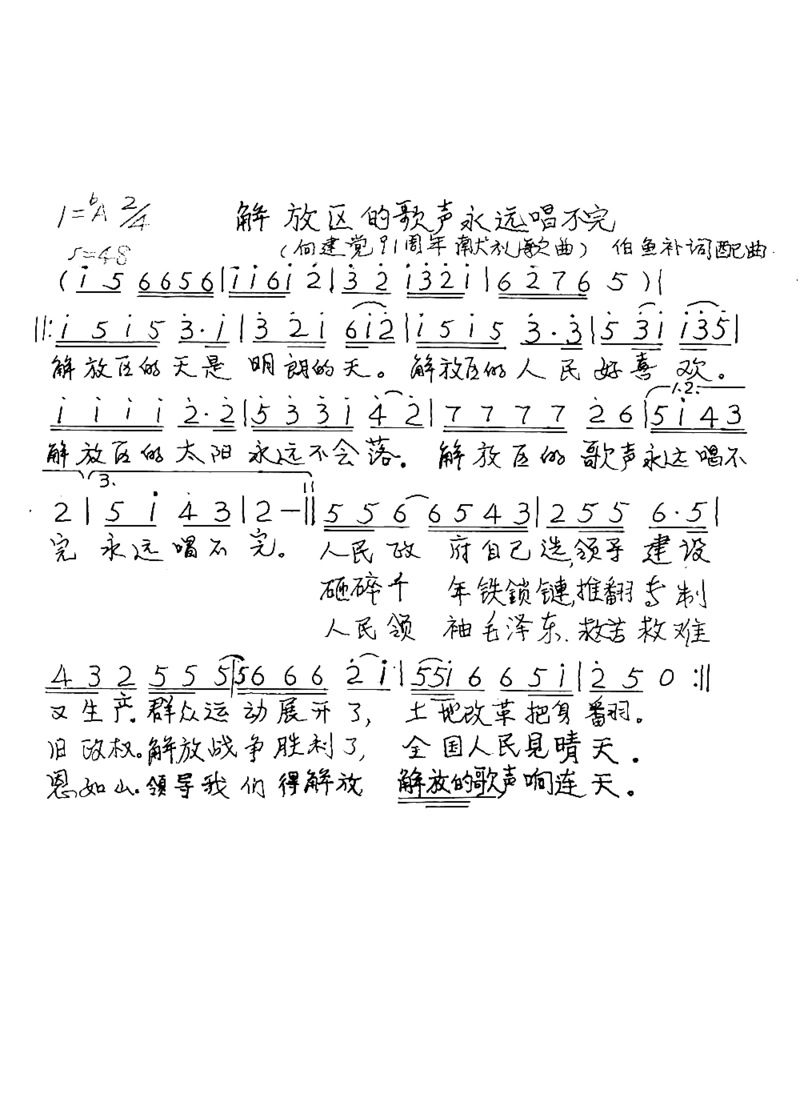 1=ᵇA 2/4 解放区的歌声永远唱不完
♩=48 (向建党91周年献礼歌曲) 伯鱼补词配曲
(i̇ 5 6656|i̇i̇6i̇ 2̇|3̇ 2̇ i̇3̇2̇i̇|62̇76 5)|
||:i̇ 5 i̇ 5 3̇·i̇|3̇ 2̇i̇ 6i̇2̇|i̇ 5 i̇ 5 3̇·3̇|5̇ 3̇i̇ i̇3̇5̇|
解放区的天是 明朗的天。解放区的人民好喜欢。
i̇ i̇ i̇ i̇ 2̇·2̇|5̇ 3̇ 3̇ i̇ 4̇ 2̇|7 7 7 7 2̇ 6|5 i̇ 4̇ 3̇
1.2.
解放区的太阳永远不会落。解放区的歌声永远唱不
3.
2̇|5 i̇ 4̇ 3̇|2̇-|| 5 5 6 6 5 4 3|2 5 5 6·5|
完 永远唱不完。人民政 府自己选,领导建设
砸碎千 年铁鎖鏈,推翻专制
人民领 袖毛泽东.救苦救难
4 3 2 5 5 5|5 6 6 6 2̇ i̇|5 5 i̇ 6 6 5 i̇|2̇ 5 0 :||
又生产.群众运动展开了,土地改革把身翻。
旧政权。解放战争胜利了,全国人民見晴天.
恩如山.领导我们得解放 解放的歌声响连天。